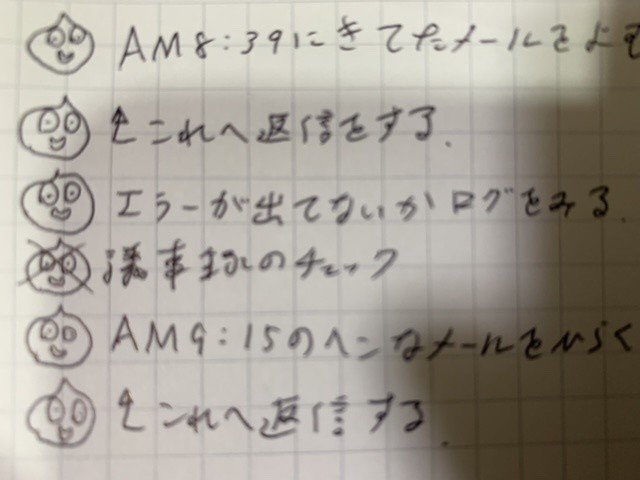 AM8:39にきてたメールをよむ
↑これへ返信をする.
エラーが出てないかログをみる.
議事録のチェック
AM9:15のヘンなメールをひらく
↑これへ返信する.